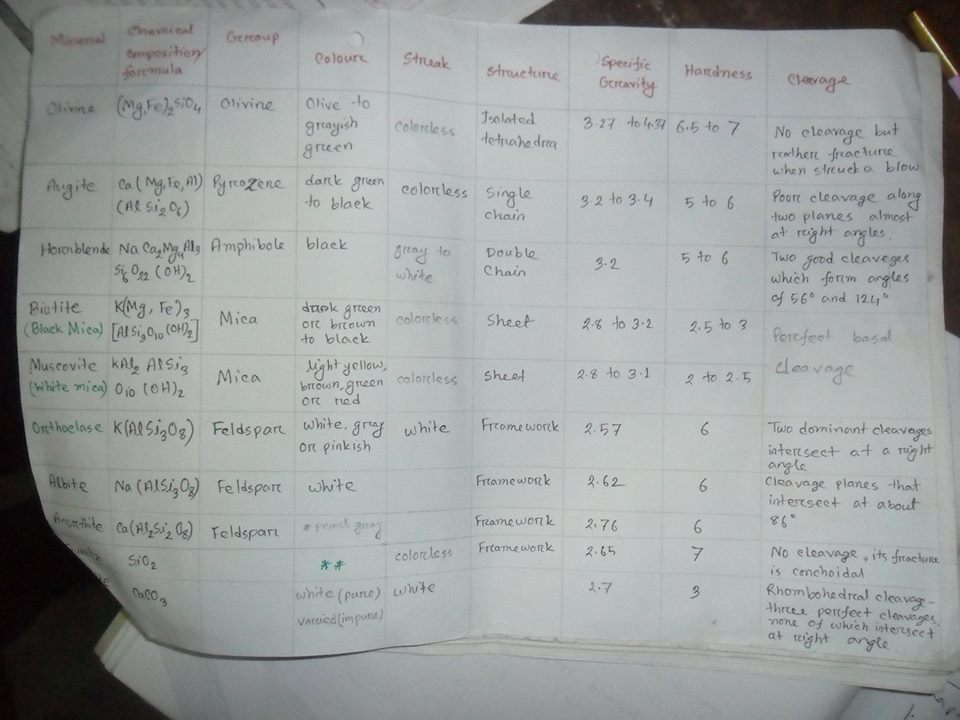 Mineral Chemical composition/ formula Group Colour Streak Structure Specific Gravity Hardness Cleavage
Olivine (Mg,Fe)2SiO4 Olivine Olive to grayish green colorless Isolated tetrahedra 3.27 to 4.37 6.5 to 7 No cleavage but rather fracture when struck a blow
Augite Ca(Mg,Fe,Al)(AlSi2O6) Pyroxene dark green to black colorless Single chain 3.2 to 3.4 5 to 6 Poor cleavage along two planes almost at right angles.
Hornblende NaCa2Mg4Al3Si6O22(OH)2 Amphibole black gray to white Double Chain 3.2 5 to 6 Two good cleaveges which form angles of 56° and 124°
Biotite (Black Mica) K(Mg,Fe)3[AlSi3O10(OH)2] Mica dark green or brown to black colorless Sheet 2.8 to 3.2 2.5 to 3 Perfect basal
Muscovite (White mica) KAl2AlSi3O10(OH)2 Mica light yellow, brown, green or red colorless Sheet 2.8 to 3.1 2 to 2.5 Cleavage
Orthoclase K(AlSi3O8) Feldspar white, gray or pinkish white Framework 2.57 6 Two dominant cleavages intersect at a right angle
Albite Na(AlSi3O8) Feldspar white Framework 2.62 6 Cleavage planes that intersect at about 86°
Anorthite Ca(Al2Si2O8) Feldspar * pearl gray Framework 2.76 6
SiO2 ** colorless Framework 2.65 7 No cleavage, its fracture is conchoidal
CaCO3 white (pure) varied (impure) white 2.7 3 Rhombohedral cleavage- three perfect cleavages, none of which intersect at right angle